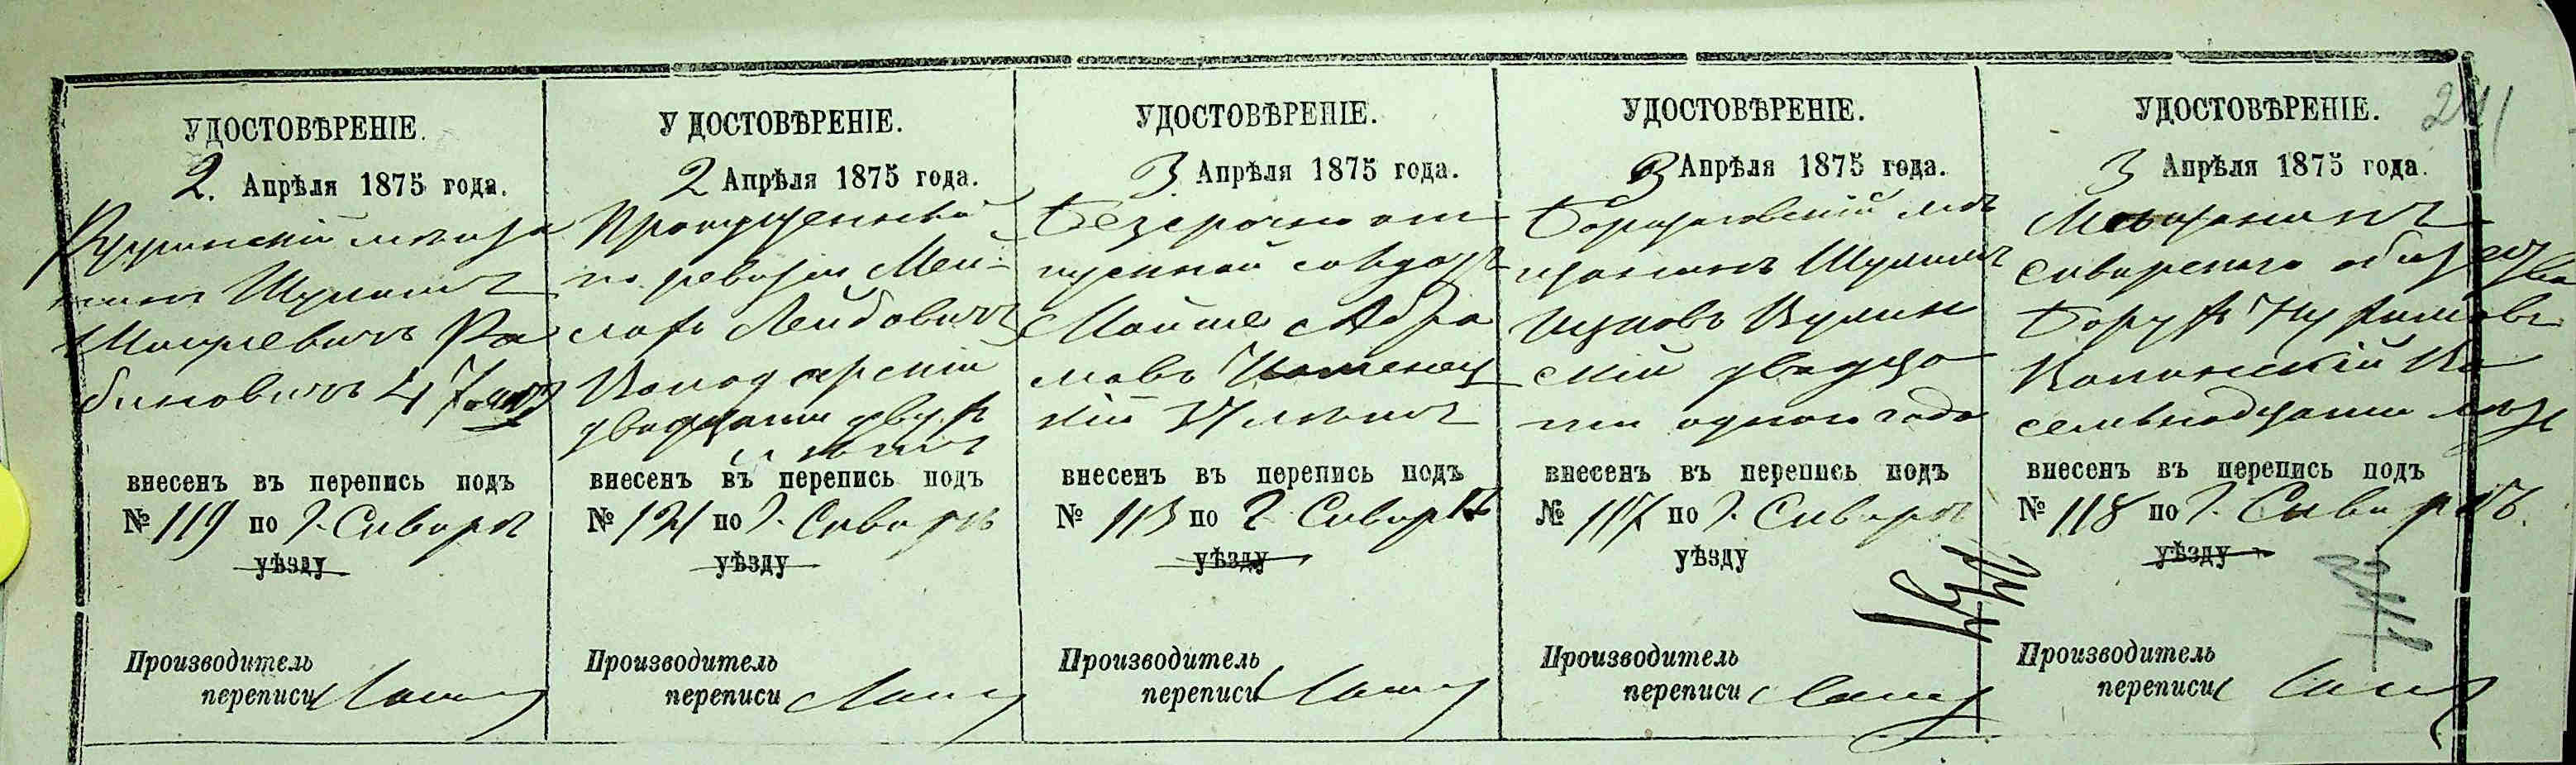 241
УДОСТОВѢРЕНІЕ.
2. Апрѣля 1875 года.
Ружинскій мѣща
нинъ Шулимъ
Шмулевичъ Ра
биновичъ 47 лѣтъ
внесенъ въ перепись подъ
№ 119 по г. Сквирѣ
уѣзду
Производитель
переписи
УДОСТОВѢРЕНІЕ.
2 Апрѣля 1875 года.
Пропущенный
по ревизіи Мей-
лахъ Лейбовичъ
двадцати двухъ
лѣтъ
внесенъ въ перепись подъ
№ 121 по г. Сквирѣ
уѣзду
Производитель
переписи
УДОСТОВѢРЕНІЕ.
3 Апрѣля 1875 года.
Безсрочно от
пускной солдатъ
Мойше Абра
мовъ Каменец
кій 34 лѣтъ
внесенъ въ перепись подъ
№ 113 по г. Сквирѣ
уѣзду
Производитель
переписи
УДОСТОВѢРЕНІЕ.
3 Апрѣля 1875 года.
мѣ
щанинъ Шулимъ
Ицковъ
скій двадца
ти одного года
внесенъ въ перепись подъ
№ 117 по г. Сквирѣ
уѣзду
Производитель
переписи
УДОСТОВѢРЕНІЕ.
3 Апрѣля 1875 года.
Мѣщанинъ
Сквирскаго общества
Борухъ
семьнадцати лѣтъ
внесенъ въ перепись подъ
№ 118 по г. Сквирѣ.
уѣзду
Производитель
переписи